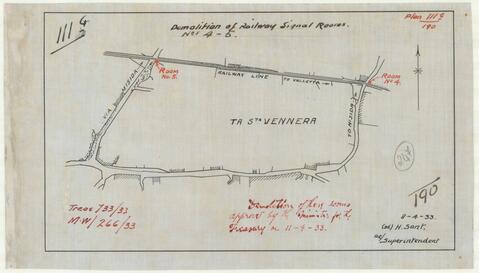 111 G
Demolition of Railway Signal Rooms.
Nos 4-5.
Plan 111 G
190
Room
No. 5.
RAILWAY LINE
TO VALLETTA
Room
No 4.
VIA MISIDA
TA STA VENNERA
TO MISIDA
190
Treas 733/33
M.W/266/33
Demolition of these rooms
approved by H. Minister for the
Treasury on 11-4-33.
8-4-33.
(sd) H. Sant,
ag/Superintendent